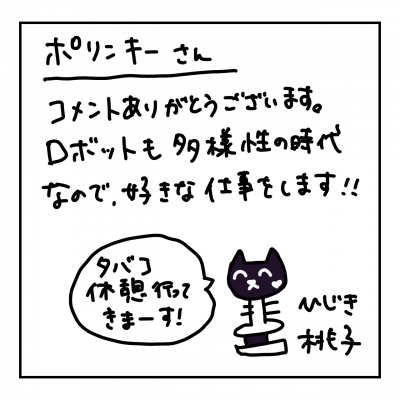 ポリンキーさん
コメントありがとうございます。
ロボットも多様性の時代
なので、好きな仕事をします!!
タバコ
休憩行って
きまーす!
ひじき
桃子